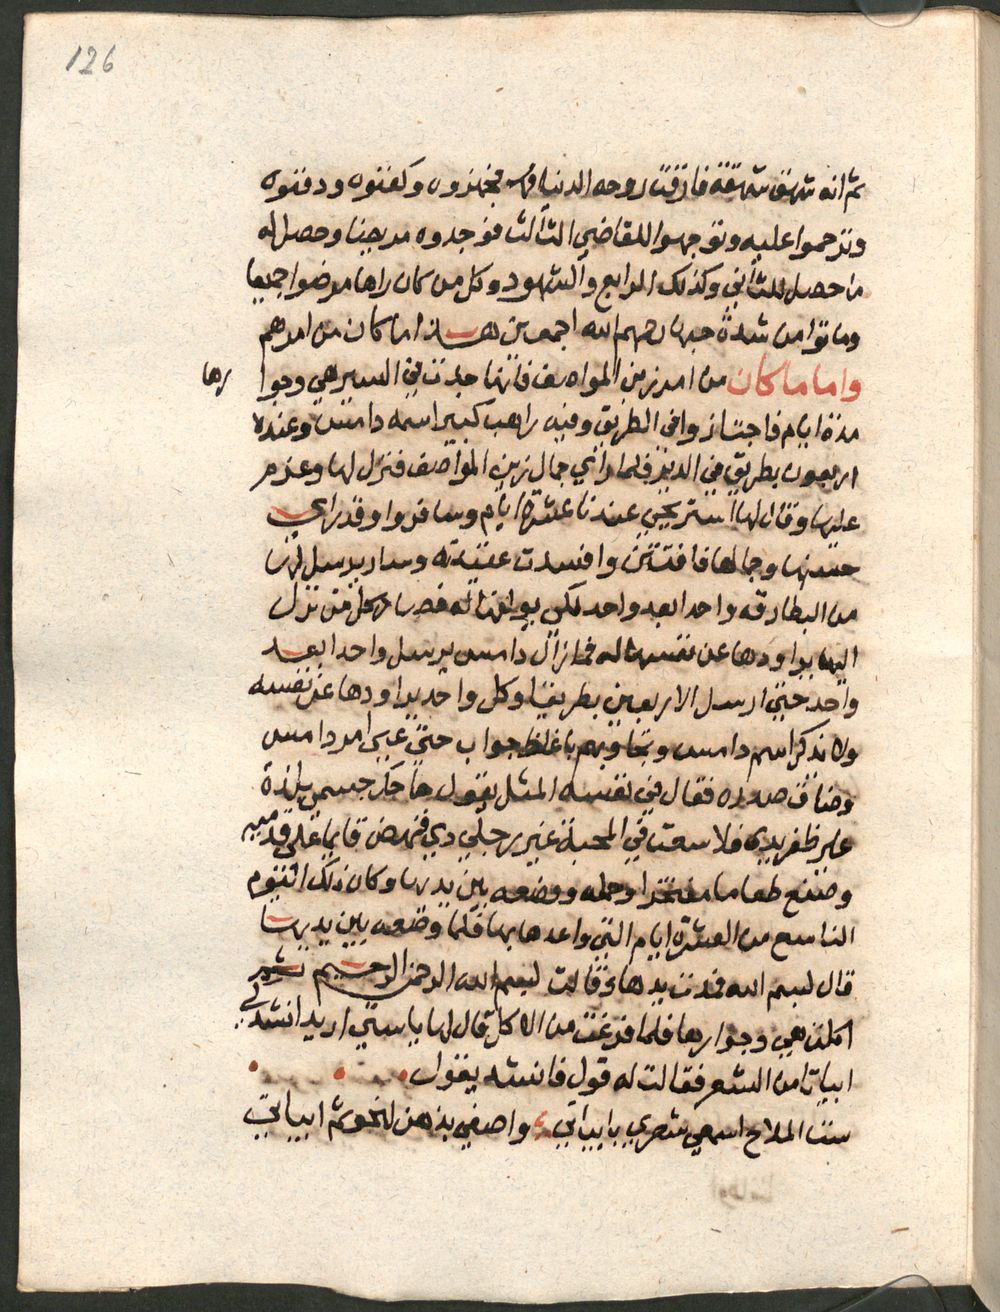 126
ثم انه شهق شهقة فارقت روحه الدنيا فيها فجهزوه وكفنوه ودفنوه
وترحموا عليه وتوجهوا للقاضي الثالث فوجدوه مريضا وحصل له
ما حصل للثاني وكذلك الرابع والشهود وكل من كان راها مرضوا جميعا
وماتوا من شدة حبها رحمهم الله اجمعين هذا ما كان من امرهم
واما ما كان من امر زين المواصف فانها جدت في السير هي وجوا
رها
مدة ايام فاجتازوا في الطريق وفيه راهب كبير اسمه دامس وعنده
اربعون بطريق في الدير فلما راي جمال زين المواصف فنزل لها وعزم
عليها وقال لها استريحي عندنا عشرة ايام وسافروا وقد راي
حسنها وجمالها فافتتن وافسدت عقيدته وصار يرسل لها
من البطارقه واحدا بعد واحد لكي يولفها له فصار كل من نزل
اليها يراودها عن نفسها له فما زال دامس يرسل واحدا بعد
واحد حتي ارسل الاربعين بطريقا وكل واحد يراودها عن نفسه
ولا تذكر اسم دامس وتجاوبهم باغلظ جواب حتي عيي امر دامس
وضاق صدره فقال في نفسه المثل يقول ما حك جسمي بلذة
غير ظفر يدي ولا سعت في المحبة غير رجلي دي فنهض قايما علي قدميه
وصنع طعاما مفتخرا وحمله ووضعه بين يديها وكان ذلك اليوم
التاسع من العشرة ايام التي واعدها بها فلما وضعه بين يديها
قال بسم الله فمدت يدها وقالت بسم الله الرحمن الرحيم ثم
اكلت هي وجوارها فلما فرغت من الاكل قال لها يا ستي اريد انشد لي
ابياتا من الشعر فقالت له قول فانشد يقول
ست الملاح اسمعي شعري بابياتي واصغي بذهن لنحو ثم ابياتي